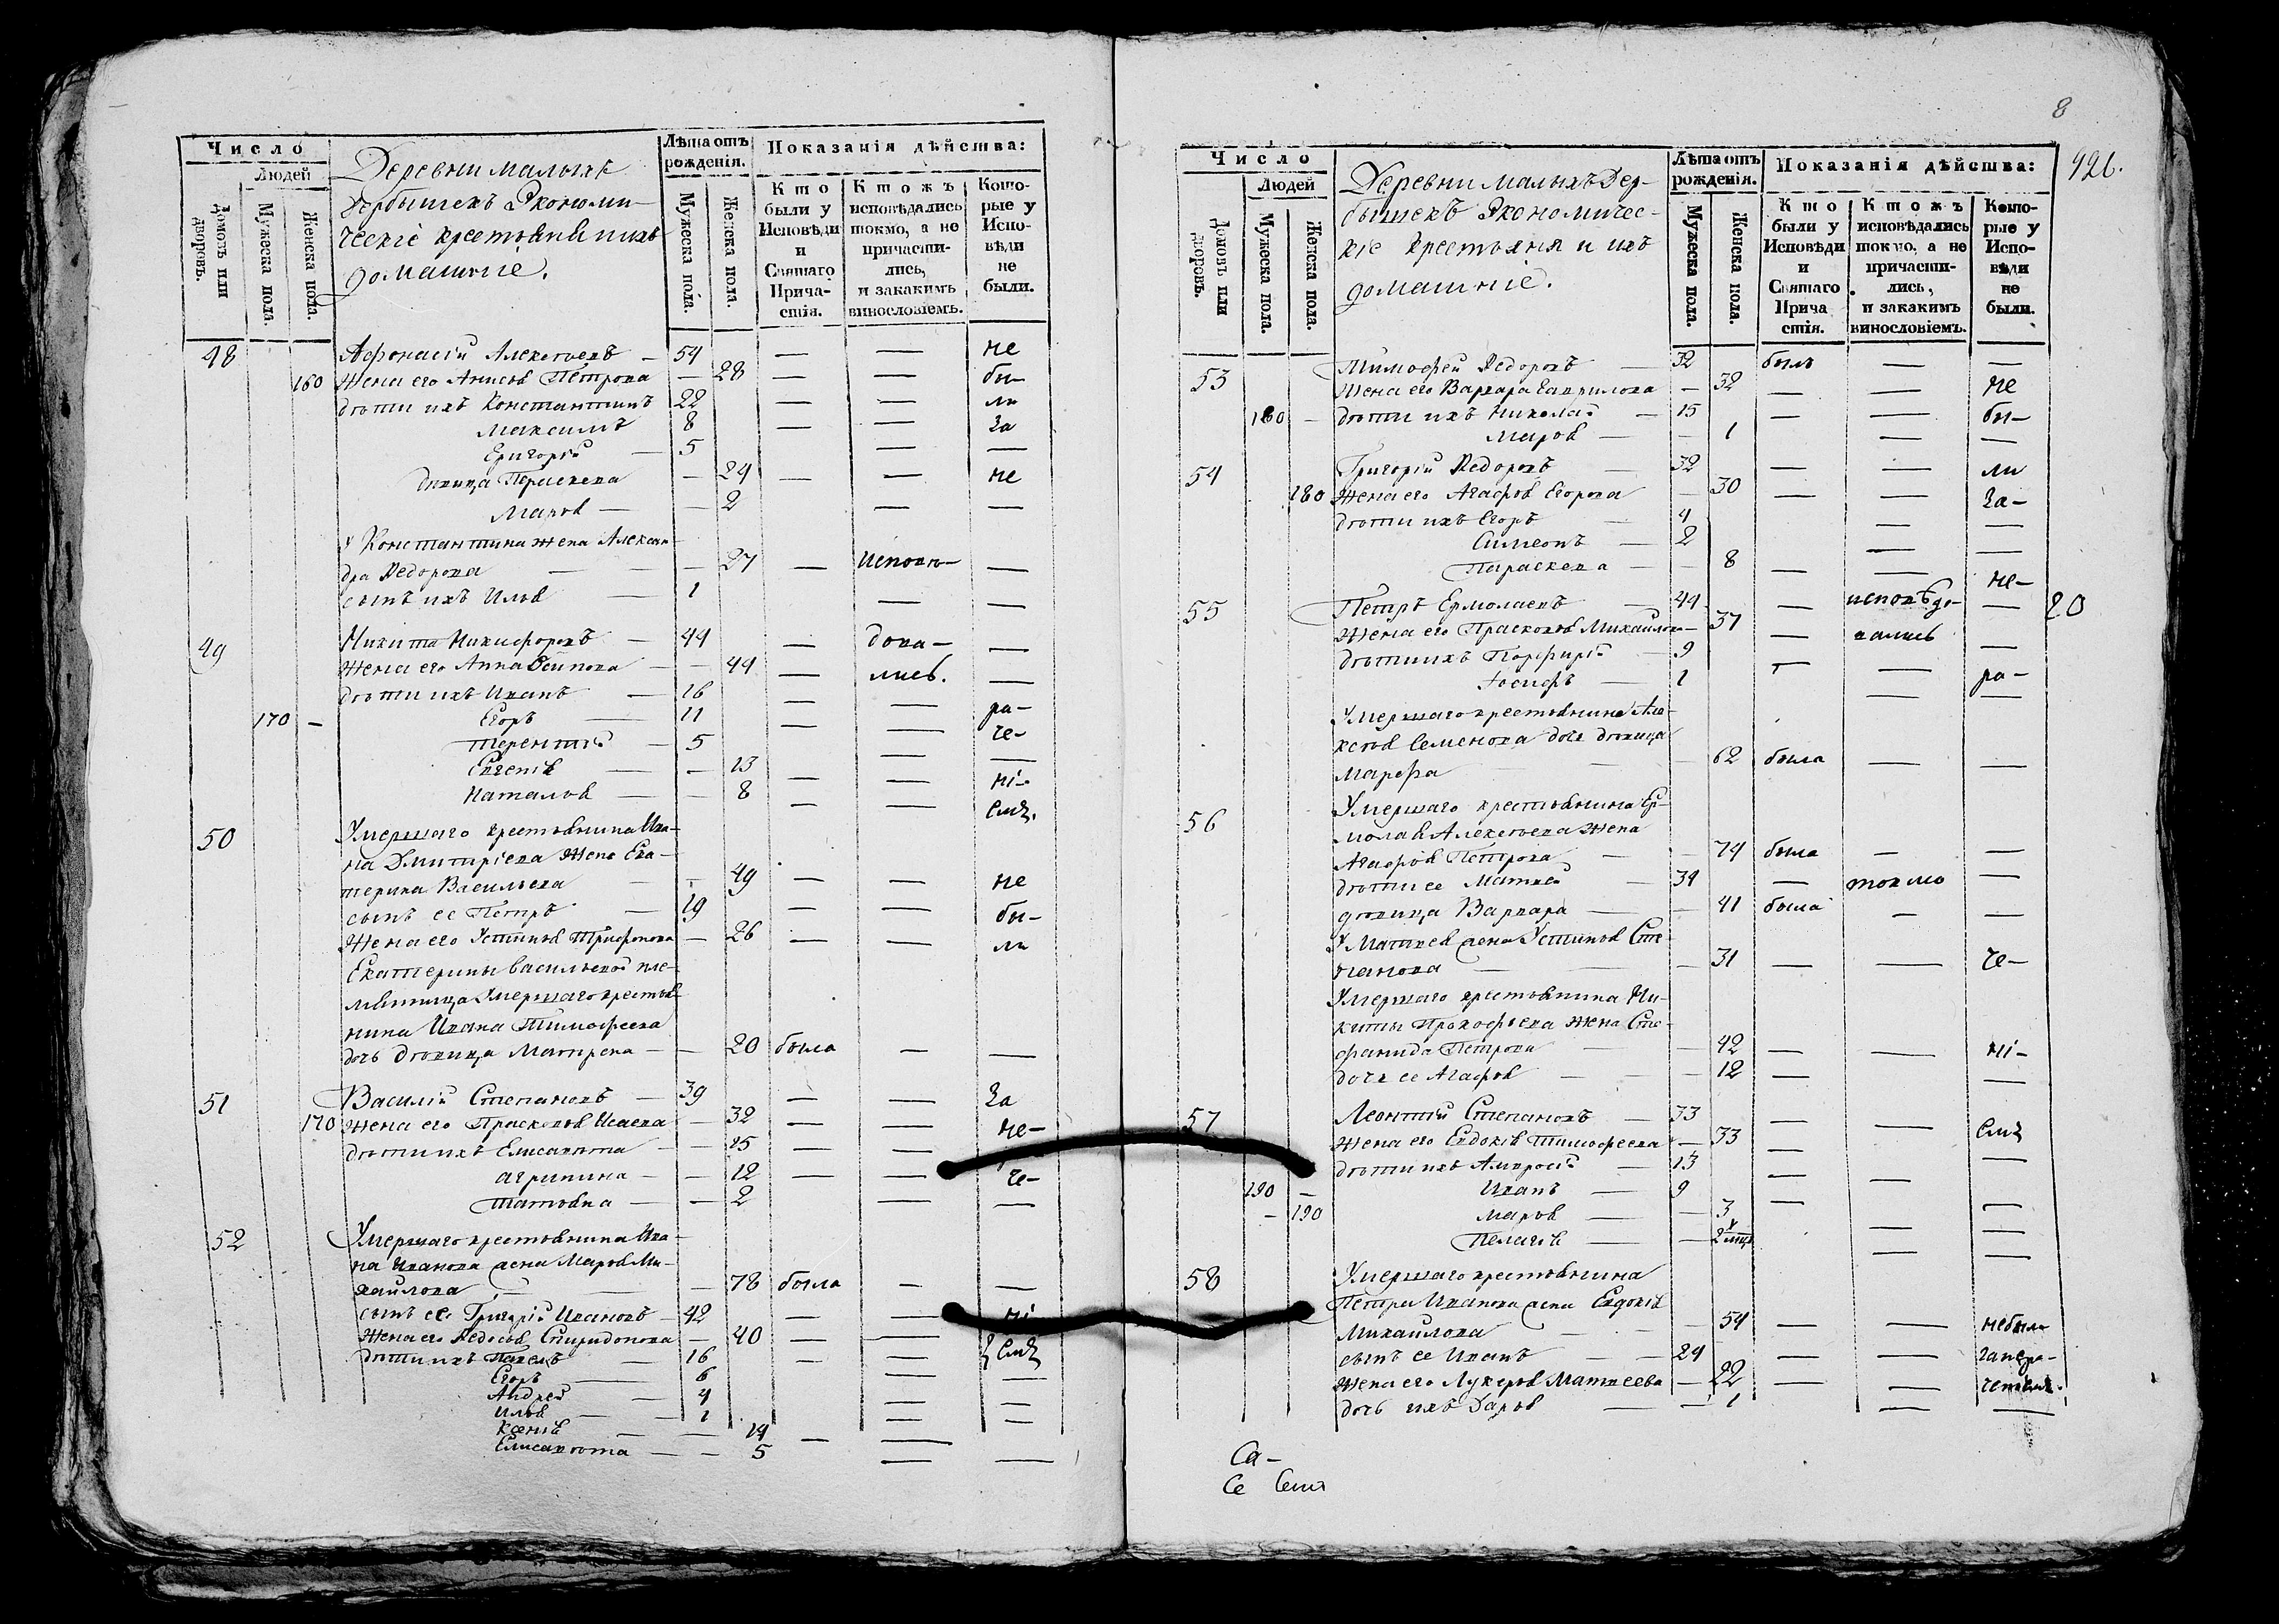 Число
Людей
Домовъ или дворовъ.
Мужеска пола.
Женска пола.
Деревни малыхъ
Дербышекъ Экономи-
ческіе крестьяня и ихъ
домашніе.
Лѣта отъ рожденія.
Мужеска пола.
Женска пола.
Показанія дѣйства:
Кто были у Исповѣди и Святаго Прича-стія.
Ктожъ исповѣдались токмо, а не причасти-лись, и закакимъ винословіемъ.
Кото-рые у Испо-вѣди не были.
48 Афонасій Алексѣевъ — 54 — — не
160 жена его Анисья Петрова — 28 — — бы-
дѣти ихъ Константинъ 22 — — ли
Максимъ 8 — — за
Григорій — 5 — —
дѣвица Параскева — 24 — — не
Марья — — 2 — —
У Константина жена Алексан-
дра Ѳедорова — — — 27 — исповѣ- —
сынъ ихъ Илья — 1 — —
49 Никита Никифоровъ — 44 — дова- —
жена его Анна Осипова — — 44 — лись. —
дѣти ихъ Иванъ — 16 — — ра-
170 — Егоръ — 11 — — че-
Терентій — 5 — —
Евгенія — — 13 — — ні-
Наталья — — 8 — — емъ.
50 Умершаго крестьянина Ива-
на Дмитріева жена Ека-
терина Васильева — — 49 — — не
сынъ ее Петръ — 19 — — бы-
жена его Устинья Трифонова — 26 — — ли
Екатерины Васильевой пле-
мянница умершаго крестья-
нина Ивана Тимофеева
дочь дѣвица Матрена — — 20 была — —
51 Василій Степановъ — 39 — — за
170 жена его Прасковья Исаева — 32 — — не-
дѣти ихъ Елисавета — — 15 — —
Агрипина — — 12 — — че-
Татьяна — — 2 — —
52 Умершаго крестьянина Ива-
на Иванова жена Марья Ми-
хайлова — — — 78 была — —
сынъ ее Григорій Ивановъ — 42 — — ні-
жена его Ѳедосья Спиридонова — 40 — —
дѣти ихъ Павелъ — 16 — — емъ
Егоръ — 6 — —
Андрей — 4 — —
Илья — — 1 — —
Ксенія — — 14 — —
Елисавета — — 5 — —
8
426.
Число
Людей
Домовъ или дворовъ.
Мужеска пола.
Женска пола.
Деревни Малыхъ Дер-
бышекъ Экономичес-
кіе крестьяня и ихъ
домашніе.
Лѣта отъ рожденія.
Мужеска пола.
Женска пола.
Показанія дѣйства:
Кто были у Исповѣди и Святаго Прича стія.
Ктожъ исповѣдались токмо, а не причасти-лись, и закакимъ винословіемъ.
Кото-рые у Испо-вѣди не были.
53 Тимофей Ѳедоровъ — 32 былъ — —
жена его Варвара Гаврилова — 32 — — не
180 — дѣти ихъ Николай — 15 — — бы-
Марья — — 1 — —
54 Григорій Ѳедоровъ — 32 — — ли
180 жена его Агафья Егорова — 30 — — за-
дѣти ихъ Егоръ — 4 — —
Симеонъ — 2 — —
Параскева — — 8 — — не-
55 Петръ Ермолаевъ — 44 — исповѣдо- — 20
жена его Прасковья Михайлова — 37 — вались —
дѣти ихъ Порфирій — 9 — — ра-
Іосифъ — 1 — —
Умершаго крестьянина Але-
ксѣя Семенова дочь дѣвица
Марфа — — — 62 была — —
56 Умершаго крестьянина Ер-
молая Алексѣева жена
Агафья Петрова — — 74 была — —
дѣти ее Матвей — 34 — токмо —
дѣвица Варвара — — 41 была — —
У Матвея жена Устинья Сте-
панова — — — 31 — — че-
Умершаго крестьянина Ни-
киты Прокофьева жена Сте-
фанида Петрова — — 42 — — ні-
дочь ее Агафья — — 12 — —
57 Леонтій Степановъ — 33 — — емъ
жена его Евдокія Тимофеева — 33 — —
дѣти ихъ Амвросій — 13 — —
190 — Иванъ — 9 — —
— 190 Марья — — 3 — —
Пелагія — — 2 — —
58 Умершаго крестьянина
Петра Иванова жена Евдокія
Михайлова — — 54 — — небыли
сынъ ее Иванъ — — 24 — — занера-
жена его Лукерья Матвеева — 22 — — ченіемъ.
дочь ихъ Дарья — — 1 — —
Са-
Се Семя